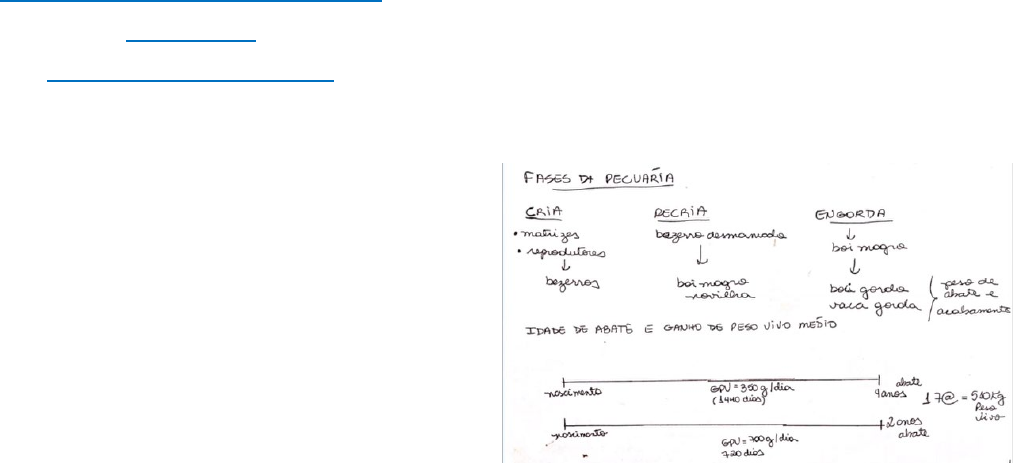 FASES DA PECUÁRIA
CRIA
• matrizes
• reprodutores
↓
bezerros
RECRIA
bezerro desmamado
↓
boi magro
novilha
ENGORDA
↓
boi magro
↓
boi gordo
vaca gorda
peso de
abate e
acabamento
IDADE DE ABATE E GANHO DE PESO VIVO MÉDIO
nascimento
GPV = 350g/dia
(1440 dias)
abate
4 anos
17@ = 510kg
Peso
Vivo
nascimento
GPV = 700g/dia
720 dias
2 anos
abate